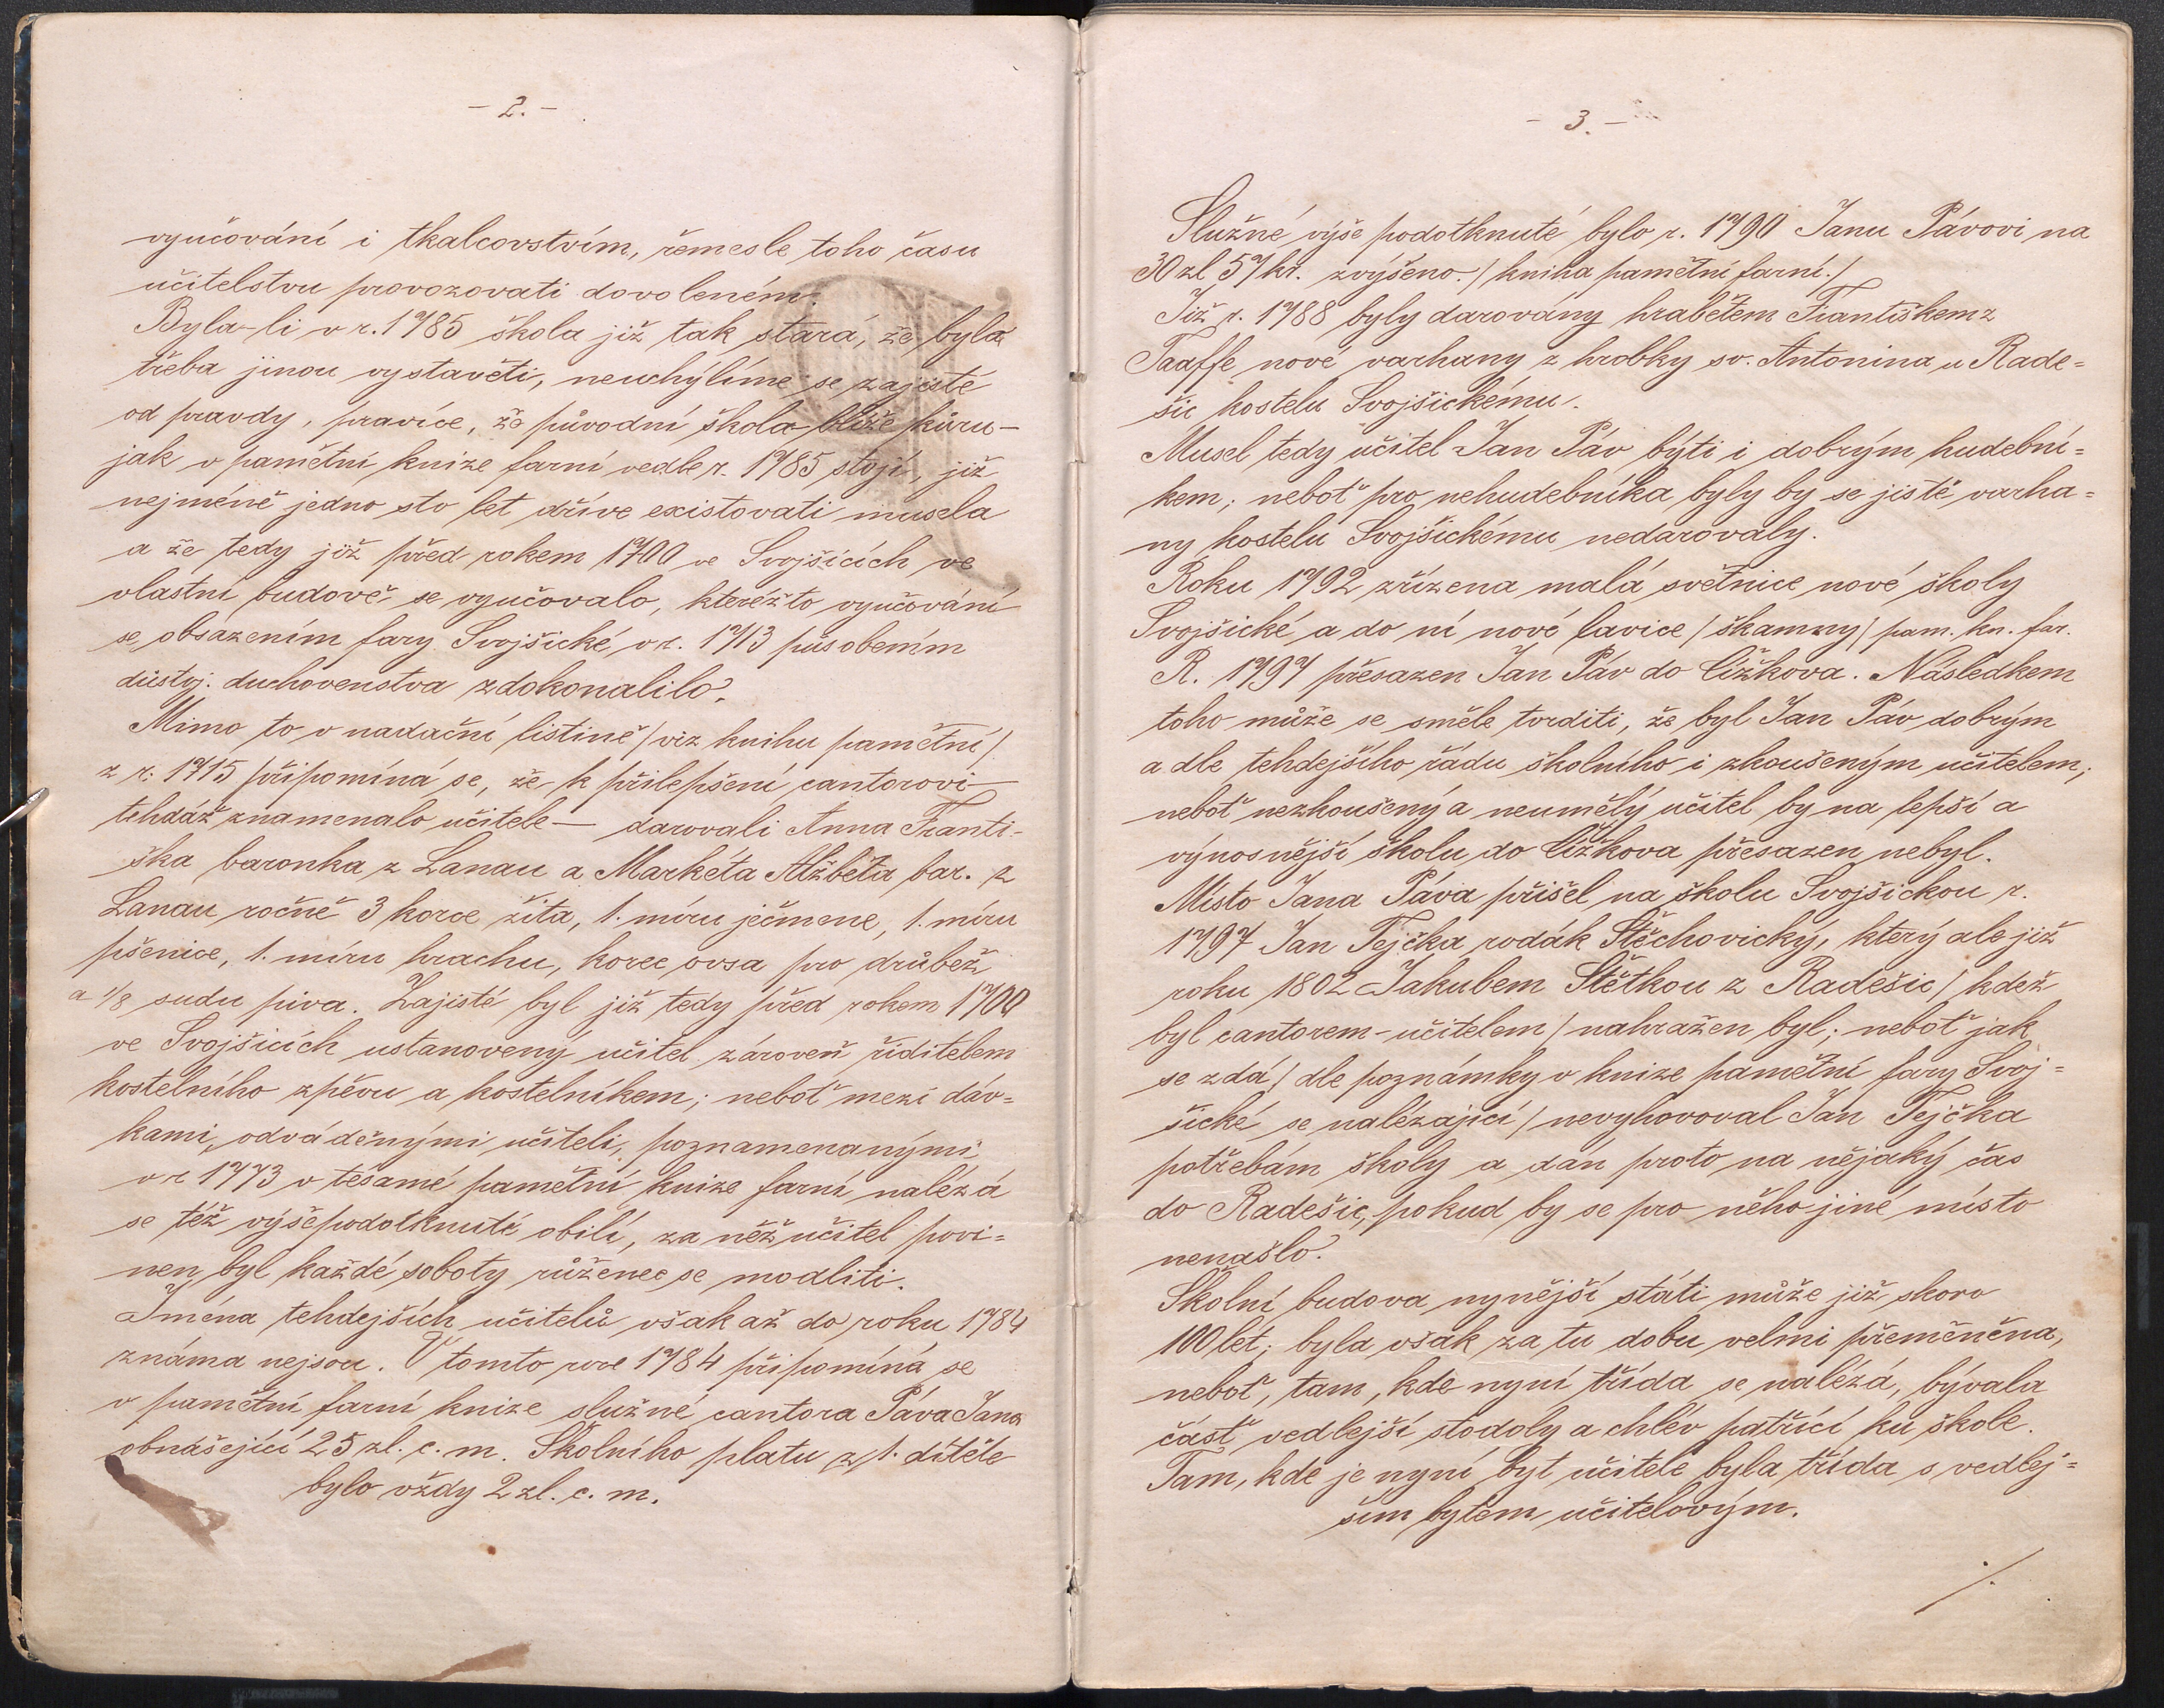 - 2. -
vyučování i tkalcovstvím, řemesle toho času
učitelstvu provozovati dovoleném.
Byla-li v r. 1785 škola již tak stará, že byla
třeba jinou vystavěti, neuchýlíme se zajisté
od pravdy, pravíce, že původní škola blíže kůru -
jak v pamětní knize farní vedle r. 1785 stojí, již
nejméně jedno sto let dříve existovati musela
a že tedy již před rokem 1700 ve Svojšicích ve
vlastní budově se vyučovalo, kteréžto vyučování
se obsázením fary Svojšické v r. 1713 působením
důstoj. duchovenstva zdokonalilo.
Mimo to v nadační listině /viz knihu pamětní/
z r. 1715 připomíná se, že k přilepšení cantorovi -
tehdáž znamenalo učitele - darovali Anna Franti-
ška baronka z Lanau a Markéta Alžběta bar. z
Lanau ročně 3 korce žita, 1. míru ječmene, 1. míru
pšenice, 1. míru hrachu, korec ovsa pro drůbež
a 1/8 sudu piva. Zajisté byl již tedy před rokem 1700
ve Svojšicích ustanovený učitel zároveň řiditelem
kostelního zpěvu a kostelníkem; neboť mezi dáv=
kami, odváděnými učiteli, poznamenanými
v r 1773 v tésamé pamětní knize farní naléza
se též výšepodotknuté obilí, za něž učitel povi=
nen byl každé soboty růženec se modliti.
Jména tehdejších učitelů však až do roku 1784
známa nejsou. V tomto roce 1784 připomíná se
v pamětní farní knize služné cantora Páva Jana
obnášející 25 zl. c. m. Školního platu z 1. dítěte
bylo vždy 2 zl. c. m.
- 3. -
Služné výše podotknuté bylo r. 1790 Janu Pávovi na
30 zl 57 kr. zvýšeno. /kniha pamětní farní./
Již r. 1788 byly darovány hrabětem Františkem z
Taaffe nové varhany z hrobky sv. Antonina u Rade=
šic kostelu Svojšickému.
Musel tedy učitel Jan Páv býti i dobrým hudební=
kem; neboť pro nehudebníka byly by se jistě varha=
ny kostelu Svojšickému nedarovaly.
Roku 1792 zřízena malá světnice nové školy
Svojšické a do ní nové lavice /škamny/ pam. kn. far.
R. 1797 přesazen Jan Páv do Čížkova. Následkem
toho může se směle tvrditi, že byl Jan Páv dobrým
a dle tehdejšího řádu školního i zkoušeným učitelem,
neboť nezkoušený a neumělý učitel by na lepší a
výnosnější školu do Čížkova přesazen nebyl.
Místo Jana Páva přišel na školu Svojšickou r.
1797 Jan Tejčka rodák Stěchovický, který ale již
roku 1802 Jakubem Stětkou z Radešic /kdež
byl cantorem-učitelem/ nahražen byl; neboť jak
se zdá /dle poznámky v knize pamětní fary Svoj=
šické se nalézající/ nevyhovoval Jan Tejčka
potřebám školy a dán proto na nějaký čas
do Radešic, pokud by se pro něho jiné místo
nenašlo.
Školní budova nynější státi může již skoro
100 let; byla však za tu dobu velmi přeměněna,
neboť, tam, kde nyní třída se nalézá, bývala
část vedlejší stodoly a chlév patřící ku škole.
Tam, kde je nyní byt učitele byla třída s vedlej=
ším bytem učitelovým.
./.